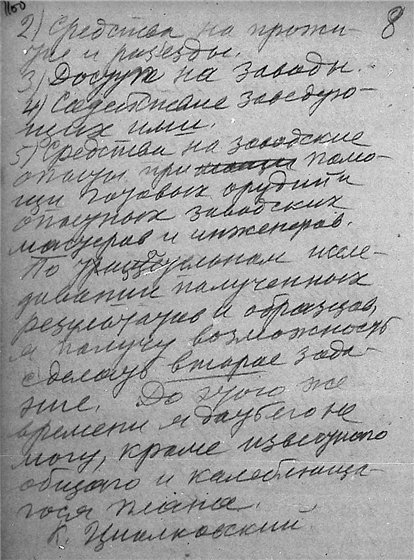 1160
8
2) Средства на прожи-
тие и разъезды.
3) Доступ на заводы.
4) Содействие заведую-
щих ими.
5) Средства на заводские
опыты при помо-
щи готовых орудий и
опытных заводских
мастеров и инженеров.
По тщательном иссле-
довании полученных
результатов и образцов,
я получу возможность
сделать второе зада-
ние. До этого же
времени я дать его не
могу, кроме известного
общего и колеблюще-
гося плана.
К. Циолковский